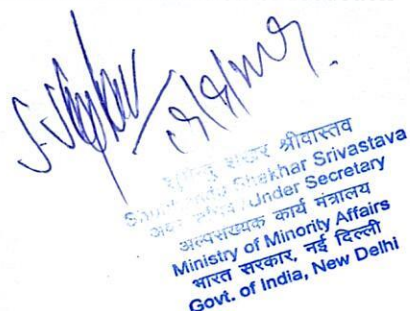 शेखर श्रीवास्तव
Shekhar Srivastava
Under Secretary
अल्पसंख्यक कार्य मंत्रालय
Ministry of Minority Affairs
भारत सरकार, नई दिल्ली
Govt. of India, New Delhi